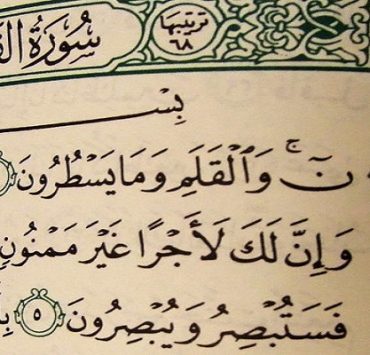 سُورَةُ الق
ترتيبها
٦٨
بِسْ
نٓۚ وَٱلْقَلَمِ وَمَا يَسْطُرُونَ
وَإِنَّ لَكَ لَأَجْرًا غَيْرَ مَمْنُونٍ
فَسَتُبْصِرُ وَيُبْصِرُونَ ٥